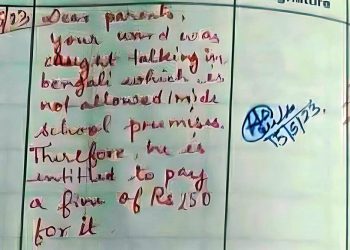 5/23 Dear parents,
your ward was
caught talking in
bengali which is
not allowed inside
school premises.
Therefore, he is
intitled to pay
a fine of Rs 250
for it
15/5/23.